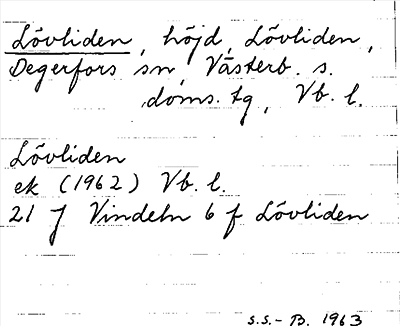 Lövliden, höjd, Lövliden,
Degerfors sn, Västerb. s.
doms. tg, Vb. l.
Lövliden
ek (1962) Vb. l.
21 J Vindeln 6 f Lövliden
S.S.-B. 1963